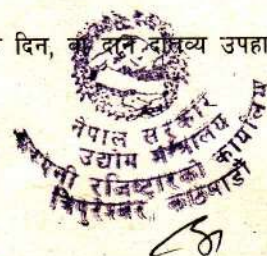 दिन, वा दान दातव्य उपहा
नेपाल सरकार
उद्योग मन्त्रालय
कम्पनी रजिष्ट्रारको कार्यालय
त्रिपुरेश्वर काठमाडौं